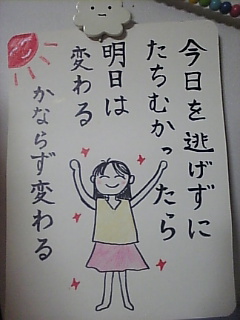 今日を逃げずに
たちむかったら
明日は
変わる
かならず変わる